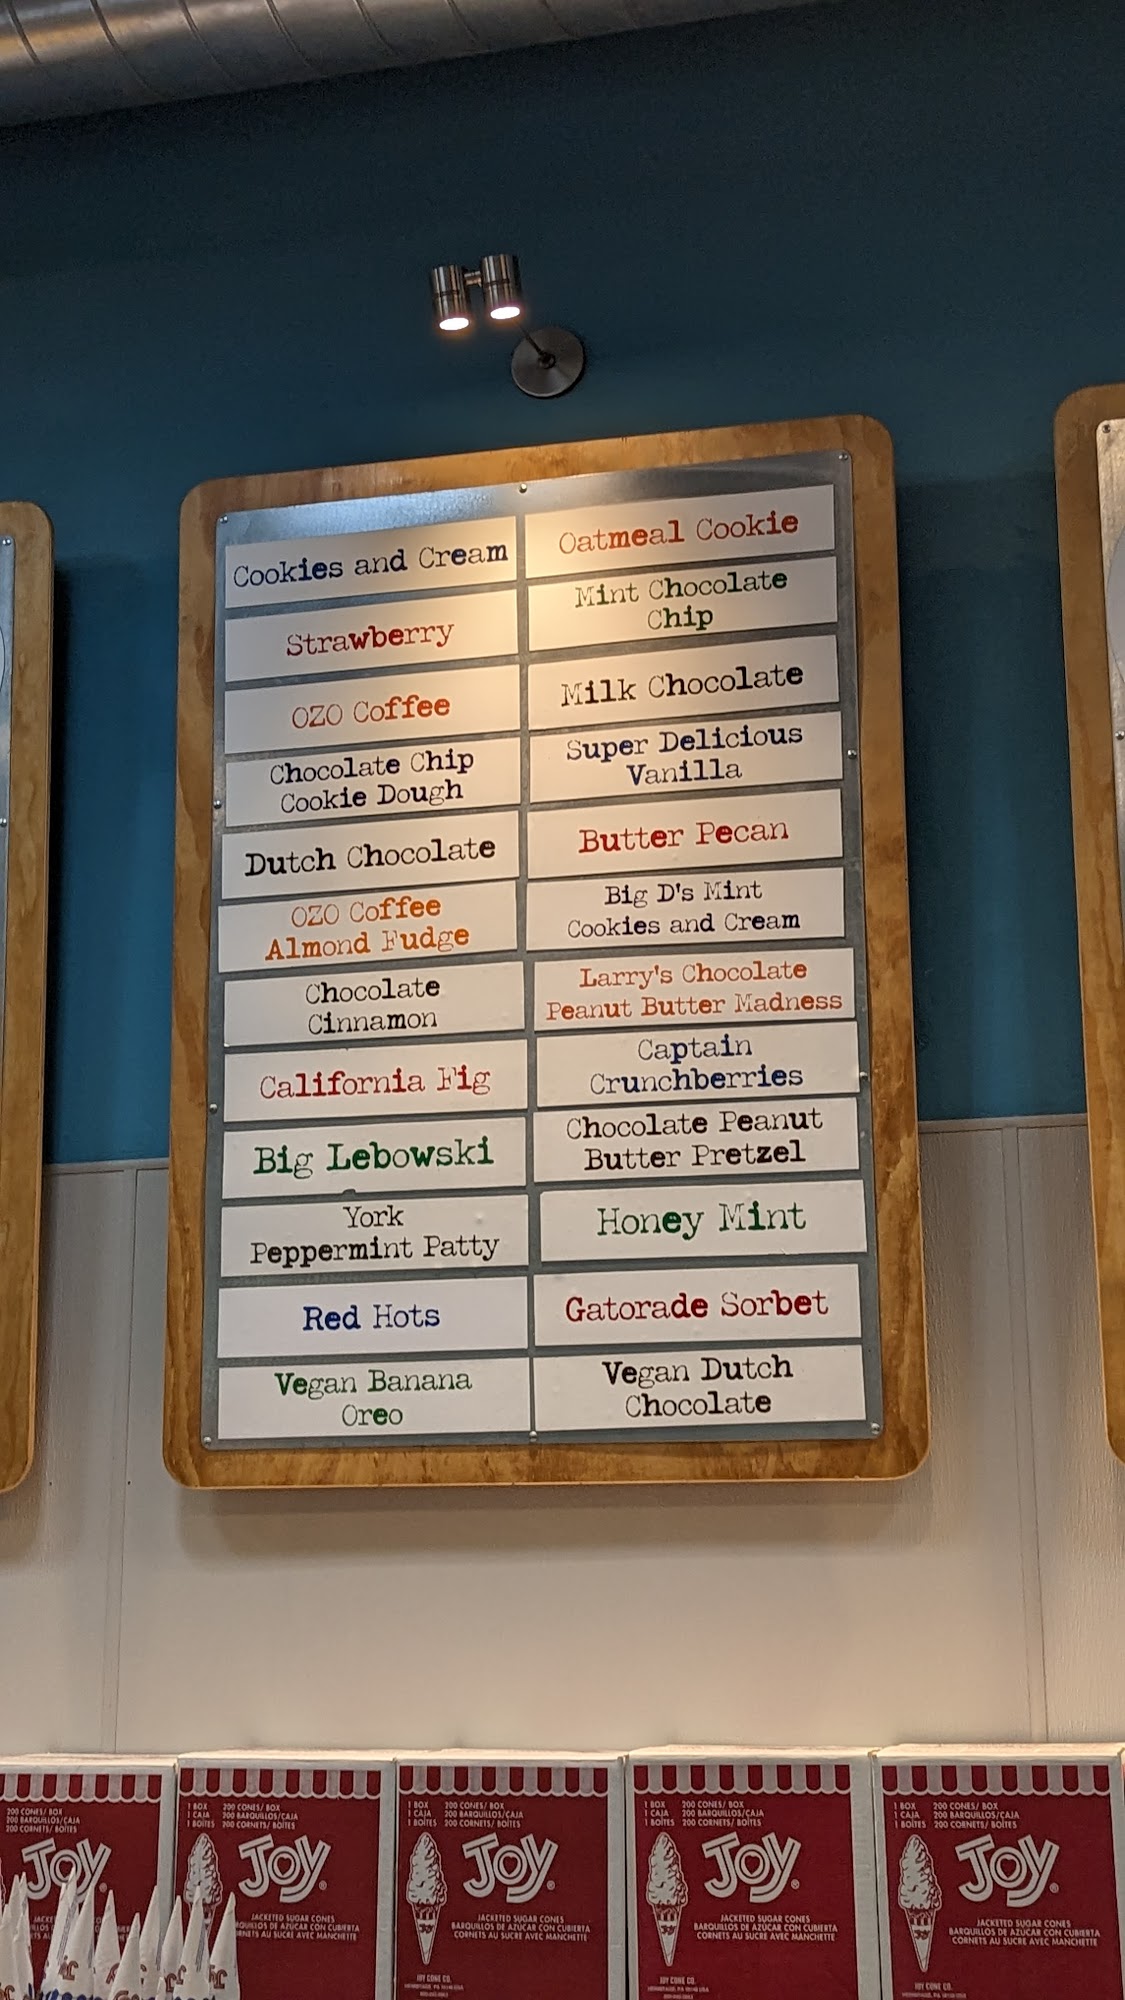 Cookies and Cream
Strawberry
OZO Coffee
Chocolate Chip
Cookie Dough
Dutch Chocolate
OZO Coffee
Almond Fudge
Chocolate
Cinnamon
California Fig
Big Lebowski
York
Peppermint Patty
Red Hots
Vegan Banana
Oreo
Oatmeal Cookie
Mint Chocolate
Chip
Milk Chocolate
Super Delicious
Vanilla
Butter Pecan
Big D's Mint
Cookies and Cream
Larry's Chocolate
Peanut Butter Madness
Captain
Crunchberries
Chocolate Peanut
Butter Pretzel
Honey Mint
Gatorade Sorbet
Vegan Dutch
Chocolate
200 CONES/ BOX
200 BARQUILLOS/CAJA
200 CORNETS/ BOÎTES
JOY
1 BOX 200 CONES/ BOX
1 CAJA 200 BARQUILLOS/CAJA
1 BOÎTES 200 CORNETS/ BOÎTES
JOY
JACKETED SUGAR CONES
BARQUILLOS DE AZUCAR CON CUBIERTA
CORNETS AU SUCRE AVEC MANCHETTE
1 BOX 200 CONES/ BOX
1 CAJA 200 BARQUILLOS/CAJA
1 BOÎTES 200 CORNETS/ BOÎTES
JOY
JACKETED SUGAR CONES
BARQUILLOS DE AZUCAR CON CUBIERTA
CORNETS AU SUCRE AVEC MANCHETTE
JOY CONE CO.
1 BOX 200 CONES/ BOX
1 CAJA 200 BARQUILLOS/CAJA
1 BOÎTES 200 CORNETS/ BOÎTES
JOY
JACKETED SUGAR CONES
BARQUILLOS DE AZUCAR CON CUBIERTA
CORNETS AU SUCRE AVEC MANCHETTE
JOY CONE CO.
1 BOX 200 CONES/ BOX
1 CAJA 200 BARQUILLOS/CAJA
1 BOÎTES 200 CORNETS/ BOÎTES
JOY
JACKETED SUGAR CONES
BARQUILLOS DE AZUCAR CON CUBIERTA
CORNETS AU SUCRE AVEC MANCHETTE
JOY CONE CO.